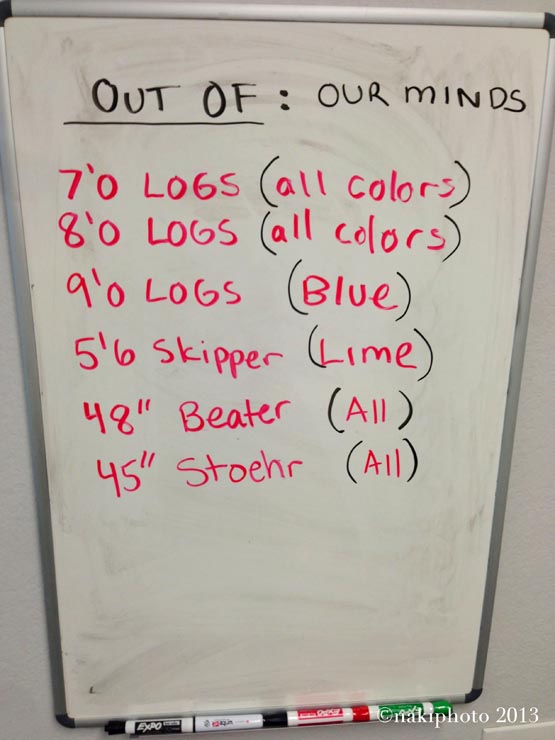 OUT OF: OUR MINDS
7'0 LOGS (all colors)
8'0 LOGS (all colors)
9'0 LOGS (Blue)
5'6 Skipper (Lime)
48" Beater (All)
45" Stoehr (All)
EXPO
©nakiphoto 2013